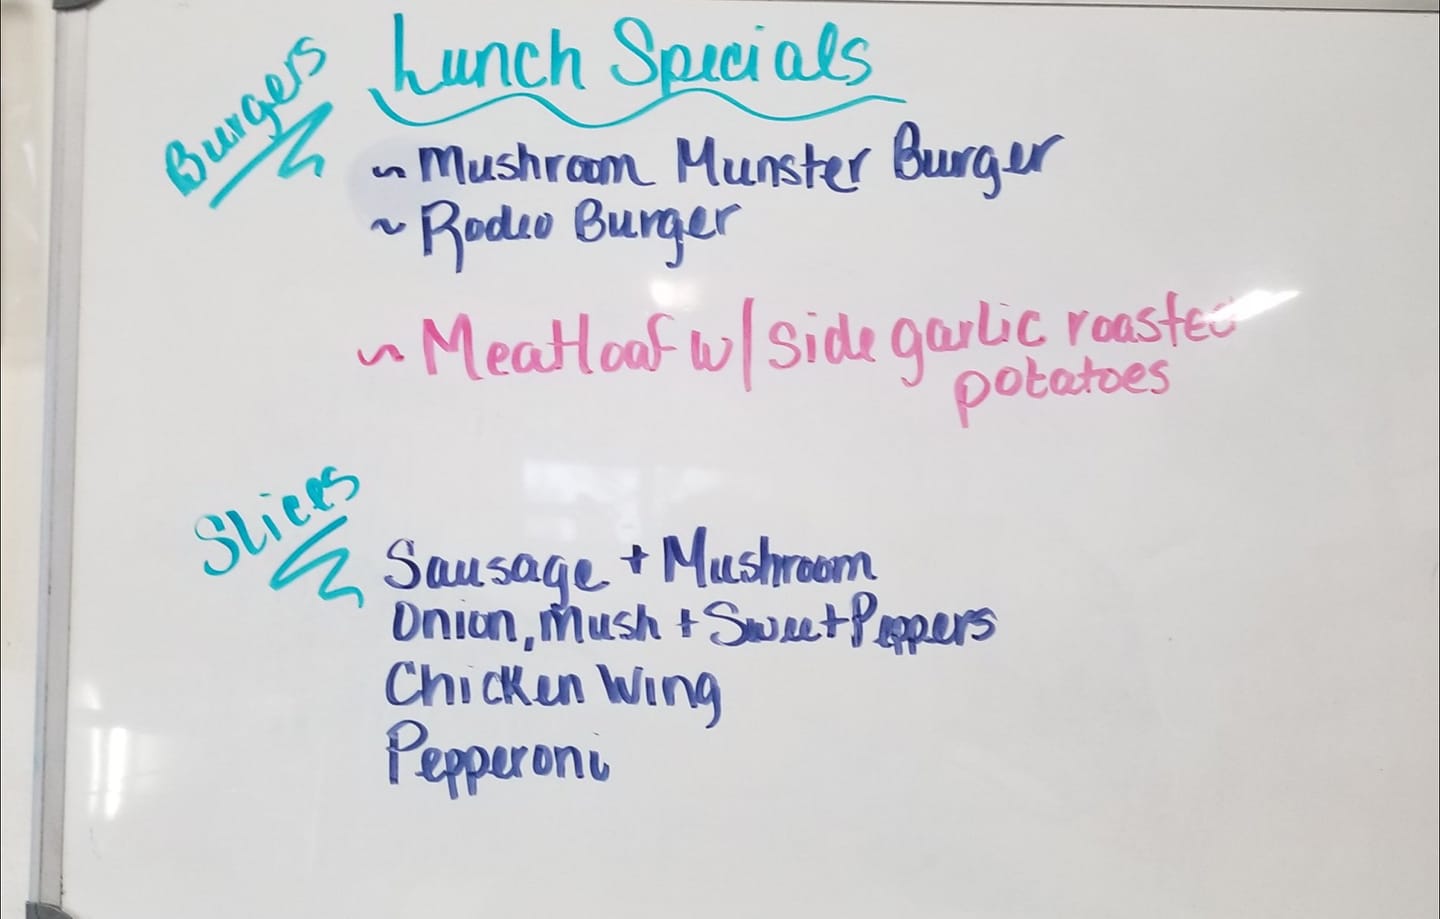 Lunch Specials
Burgers
~ Mushroom Munster Burger
~ Rodeo Burger
~ Meatloaf w/ side garlic roasted
potatoes
Slices
Sausage + Mushroom
Onion, Mush + Sweet Peppers
Chicken Wing
Pepperoni